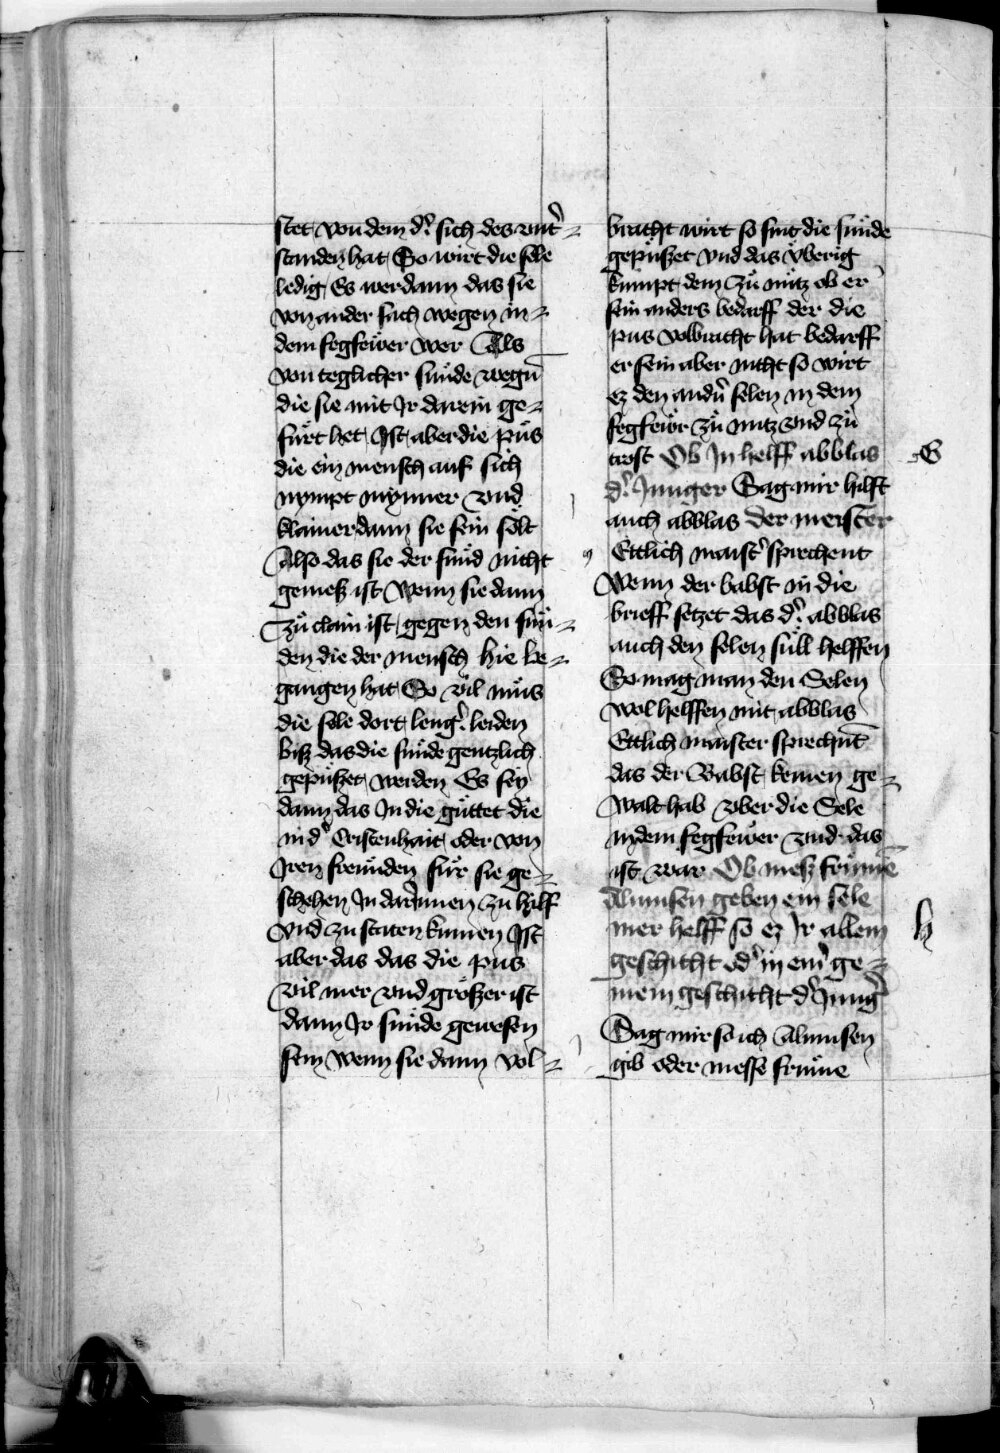 stet von dem d̕ sich des vnt̕=
standen hat So wirt die sele
ledig Es wer dann das sie
von ander sach wegen in=
dem fegfewer wer Als
von teglicher sünde wegn̄
die sie mit Jr darein ge=
fürt het Jst aber die půs
die ein mensch auf sich
nympt mynner vnd
klainer dann sie sein sölt
Also das sie der sünd nicht
gemeß ist Wenn sie dann
zů clain ist gegen den sün=
den die der mensch hie be=
gangen hat So vil můs
die sele dort leng̕ leiden
biß das die sünde gentzlich
gepüßet werden Es sey
dann das Jn die güttet die
in d̕ Cristenhait oder von
Jren frewnden für sie ge=
schehen Jn darjnnen zu hilf
vnd zu staten kumen Jst
aber das das die pus
vil mer vnd größer ist
dann Jr sünde gewesen
sein wenn sie dann vol=
bracht wirt so sint die sünde
gepüßet vnd das überig
kumpt dem zů nütz ob er
sein anders bedarff der die
pus volbracht hat bedarff
er sein aber nicht so wirt
ez den andn̄ selen in dem
fegfewr zů nutz vnd zů
trost Ob Jn helff abblas
G
d̕ Junger Sag mir hilft
auch abblas der meister
Ettlich maist̕ sprechent
Wenn der babst in die
brieff setzet das d̕ abblas
auch den selen süll helffen
So mag man den Selen
wol helffen mit abblas
Ettlich maister sprechnt
das der Babst keinen ge=
walt hab vber die Sele
in dem fegfewer vnd das
ist war Ob meß frümē
Almusen geben ein sele
mer helff so ez Jr allein
h
geschicht od̕ in ein̕ ge=
mein geschicht d̕ Jung̕
Sag mir so ich Almusen
gib oder messe frume